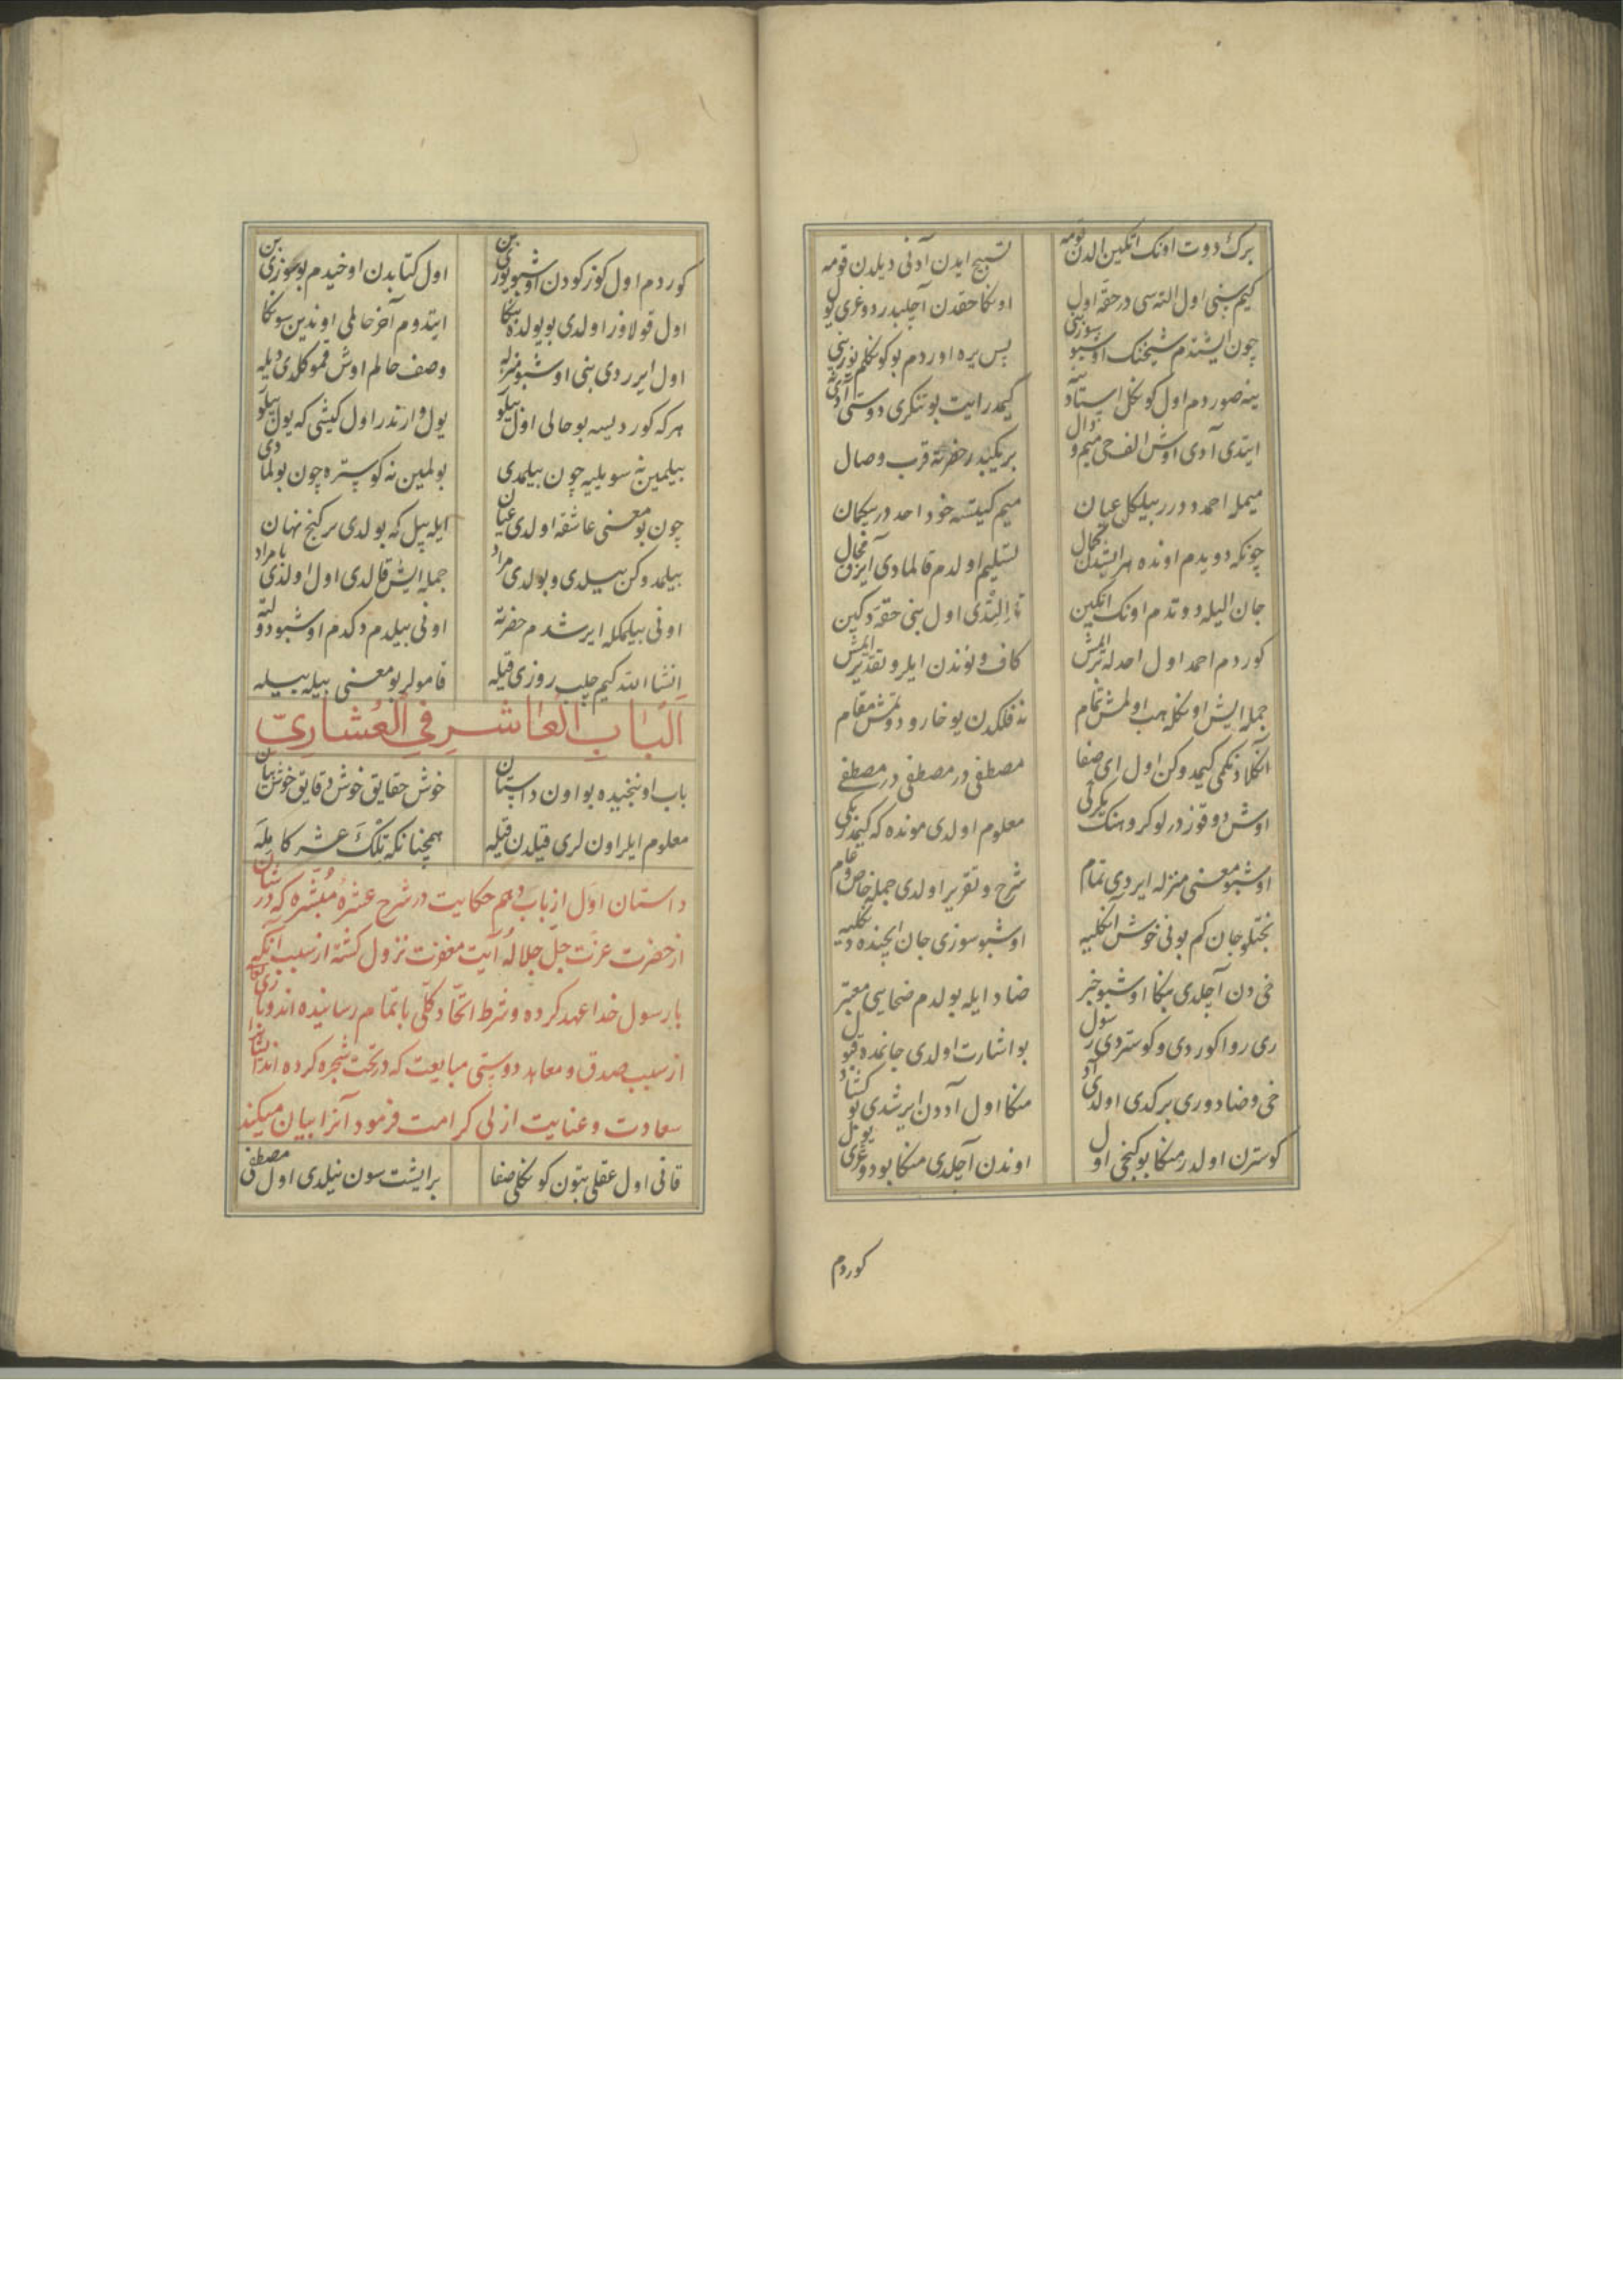 برك دوت اونك اتكين الدن قومه تسبيح ايدن آدنى ديلدن قومه
كيم سنى اول التەسی در حقه اول اونكا حقدن آچلبدر دوغری يول
چون ايشتدم شيخنك اوشبو سوزينى پس يره اوردم بو كوكلم يوزينى
ينه صوردم اول كوكل استادينه كيمدر ايت بو تنكری دوستى آدی نه
ايتدی آدی اوش الف حی ميم و دال بر يكيدر حضرته قرب وصال
ميمله احمد دورر بيلكل عيان ميم كيتسه خود احد در بيكمان
چونكه دويدم اونده هر ايشدن كمال تسليم اولدم قالمادی آيرق مجال
جان اليله دوتدم اونك اتكين تا التدی اول بنى حقه دكين
كوردم احمد اول احدله برليمش كاف و نوندن ايلرو تقديريمش
جمله ايش اونكله هب اولمش تمام نه فلكدن يوخارو دوتمش مقام
آنكلادنكمى كيمدوكن اول ای صفا مصطفى در مصطفى در مصطفى
اوش دوقوز در لو كروهنك يكركى معلوم اولدی مونده كه كيمدر يكى
اوشبو معنى منزله ايردی تمام شرح و تقرير اولدی جمله خاص و عام
بختلو جان كم بونى خوش آنكليه اوشبو سوزی جان ايچنده دنكليه
خى دن آچلدی بنكا اوشبو خبر ضاد ايله بولدم ضحاسى معتبر
ری روا كوردی و كوستردی رسول بو اشارت اولدی جانمده قبول
خى و ضاد و ری بركدی اولدی آد منكا اول آددن ايرشدی بو كشاد
كوسترن اولدر منكا بو كنجى اول اوندن آچلدی منكا بو دوغری يول
كوردم
كوردم اول كوزكودن اوشبو يوزی بن اول كتابدن اوخيدم بو سوزی بن
اول قولاوز اولدی بو يولده بنكا ايتدوم آخر حالمى اوندين سونكا
اول ايردی بنى اوشبو منزله وصف حالم اوش قمو كلدی ديله
هركه كورديسه بو حالى اول بيلور يول وارندر اول كيشى كه يول بيلور
بيلمين نه سويليه چون بيلمدی بولمين نه كوستره چون بولمادی
چون بو معنى عاشقه اولدی عيان ايله بيل كه بولدی بر كنج نهان
بيلمدوكن بيلدی و بولدی مراد جمله ايش قالدی اول اولدی با مراد
اونى بيلمكله ايرشدم حضرته اونى بيلدم دكدم اوشبو دولته
انشا الله كيم چلب روزی قيله قامولر بو معنى بيله بيله
الباب العاشر فى العشاری
باب اوننجيده بو اون داستان خوش حقايق خوش دقايق خوش بيان
معلوم ايلر اون لری قيلدن قيله همچنانكه تلك عشر كامله
داستان اول از باب دهم حكايت در شرح عشره مبشره كه در شان
از حضرت عزت جل جلاله آيت مغفرت نزول كشته از سبب آنكه
با رسول خدا عهد كرده و شرط اتحاد كلى باتمام رسانيده اند و
از سبب صدق و معاهد دوستى مبايعت كه در تحت شجره كرده اند
سعادت و عنايت ازلى كرامت فرمود آنرا بيان ميكند
قانى اول عقلى بتون كونكلى صفا بر ايشت سون نيلدی اول مصطفى